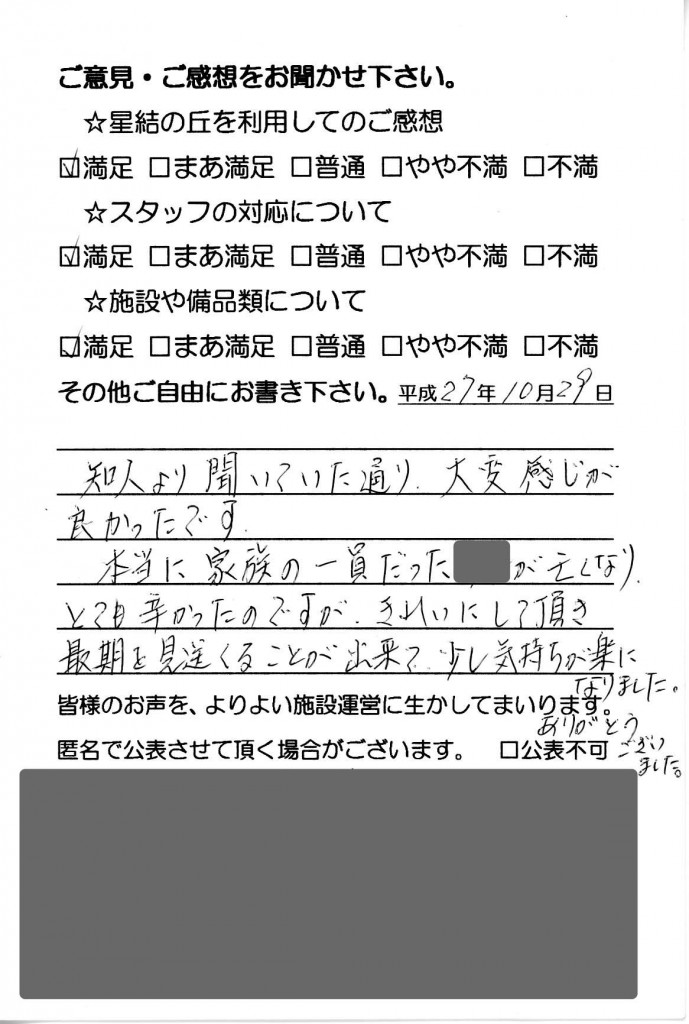 ご意見・ご感想をお聞かせ下さい。
☆星結の丘を利用してのご感想
☑満足 □まあ満足 □普通 □やや不満 □不満
☆スタッフの対応について
☑満足 □まあ満足 □普通 □やや不満 □不満
☆施設や備品類について
☑満足 □まあ満足 □普通 □やや不満 □不満
その他ご自由にお書き下さい。平成27年10月29日
知人より聞いていた通り、大変感じが
良かったです。
本当に家族の一員だったが亡くなり、
とても辛かったのですが、きれいにして頂き
最期を見送くることが出来て、少し気持ちが楽に
なりました。
皆様のお声を、よりよい施設運営に生かしてまいります。
ありがとう
匿名で公表させて頂く場合がございます。 □公表不可
ござい
ました。